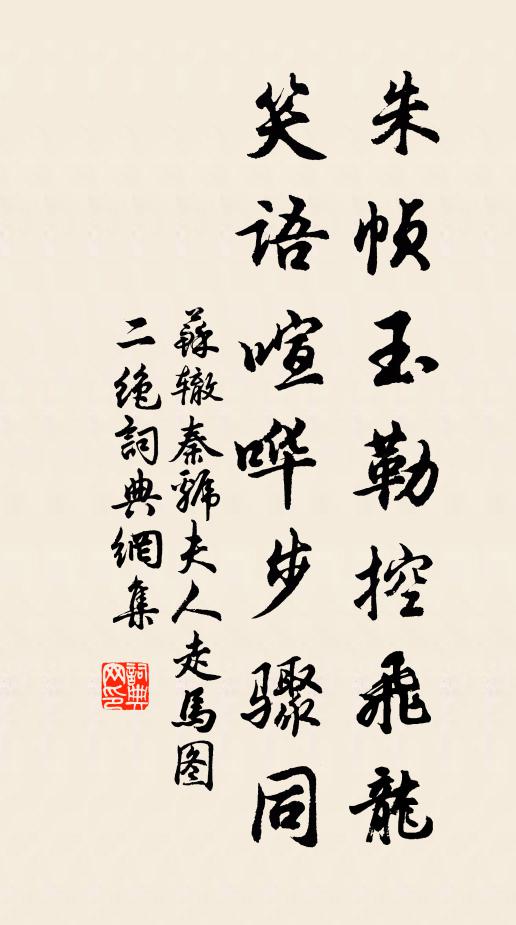 朱幘玉勒控飛龍
笑語喧哗步驟同
蘇辙秦虢夫人走馬图
二絶詞典網集
詞典网印